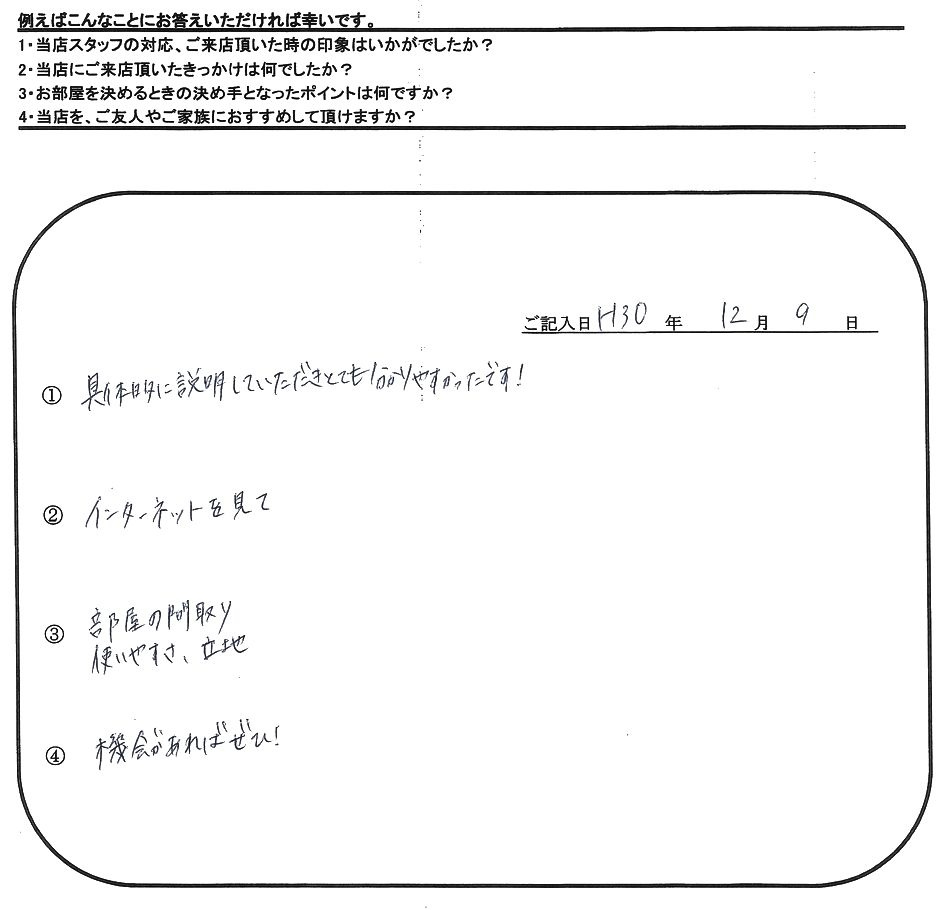 例えばこんなことにお答えいただければ幸いです。
1・当店スタッフの対応、ご来店頂いた時の印象はいかがでしたか？
2・当店にご来店頂いたきっかけは何でしたか？
3・お部屋を決めるときの決め手となったポイントは何ですか？
4・当店を、ご友人やご家族におすすめして頂けますか？
ご記入日 H30 年 12 月 9 日
① 具体的に説明していただきとても分かりやすかったです！
② インターネットを見て
③ 部屋の間取り
使いやすさ、立地
④ 機会があればぜひ！